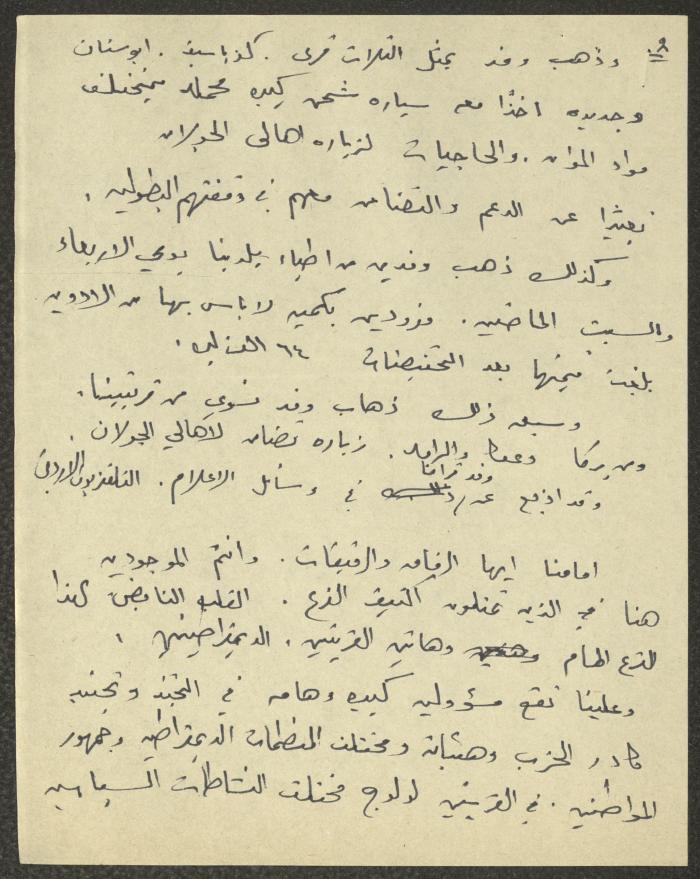 وذهب وفد يمثل الثلاث قرى. كفرياسيف. ابوسنان
وجديده اخذًا معه سياره شحن كبيره محمله بمختلف
مواد المؤن. والحاجيات لزياره اهالي الجولان
تعبيرًا عن الدعم والتضامن معهم في وقفتهم البطوليه.
وكذلك ذهب وفدين من اطباء بلدينا يومي الاربعاء
والسبت الماضيين. مزودين بكميه لا باس بها من الادويه
بلغت قيمتها بعد التخفيضات ٦٤ الف ليره.
وسبق ذلك ذهاب وفد نسوي من قريتينا.
ومن يركا وعكا والرامه. زياره تضامن لاهالي الجولان.
وقد اذيع عن وفد قرانا في وسائل الاعلام. التلفزيون الاردني
امامنا ايها الرفاق والرفيقات. وانتم الموجودين
هنا في الذين تمثلون الفرع. القلب النابض لهذا
الفرع الهام وهاتين القريتين. الديمقراطيتين.
وعلينا تقع مسؤوليه كبيره وهامه في التجند وتجنيد
كادر الحزب وهيئاته ومختلف المنظمات الديمقراطيه وجمهور
المواطنين. في القريتين لولوج مختلف النشاطات السياسيه